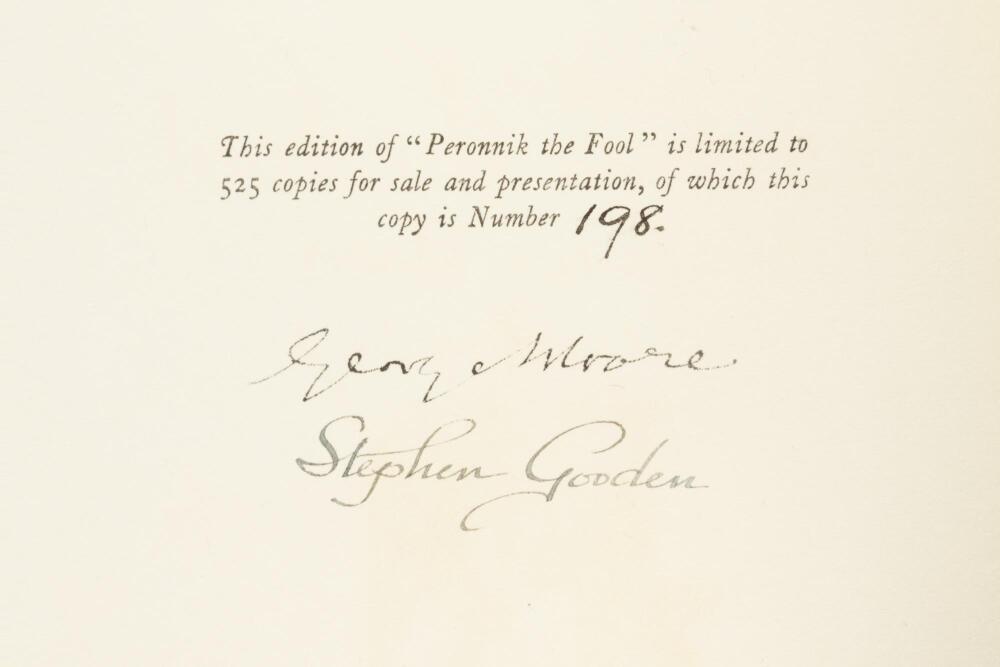 This edition of “Peronnik the Fool” is limited to
525 copies for sale and presentation, of which this
copy is Number 198.
George Moore
Stephen Gooden